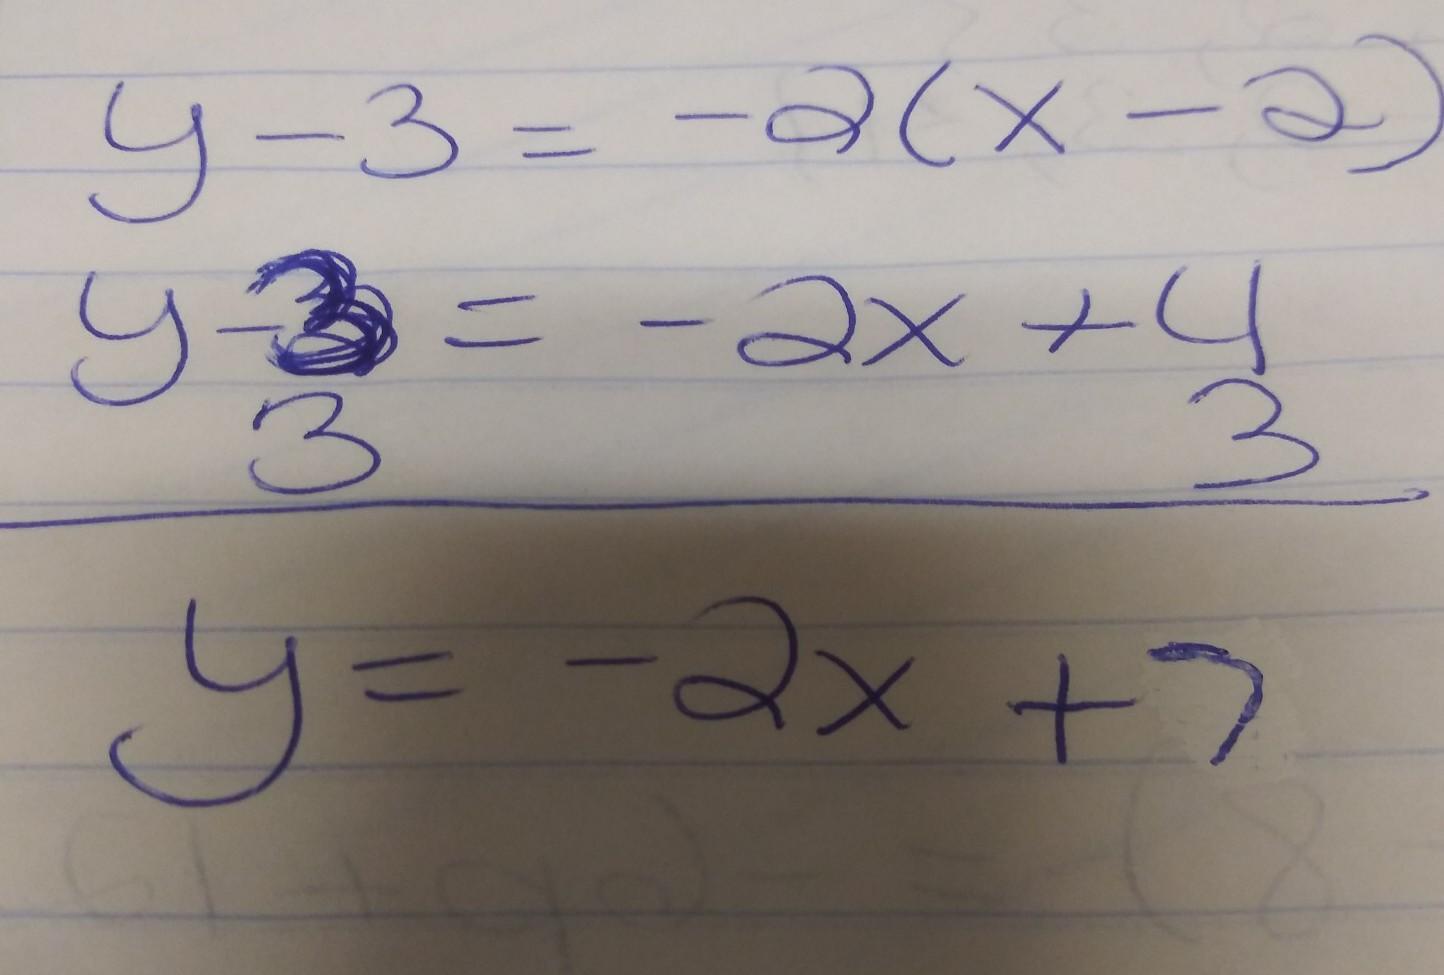 y - 3 = -2(x - 2)
y - 3 = -2x + 4
3 3
y = -2x + 7